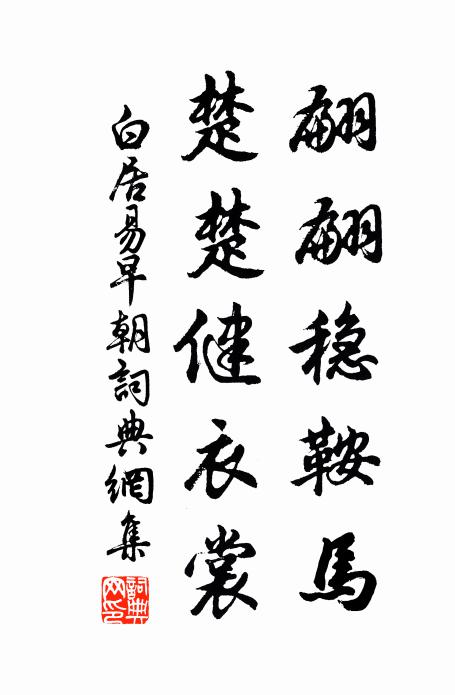 翩翩穩鞍馬
楚楚健衣裳
白居易早朝詞典網集
詞典